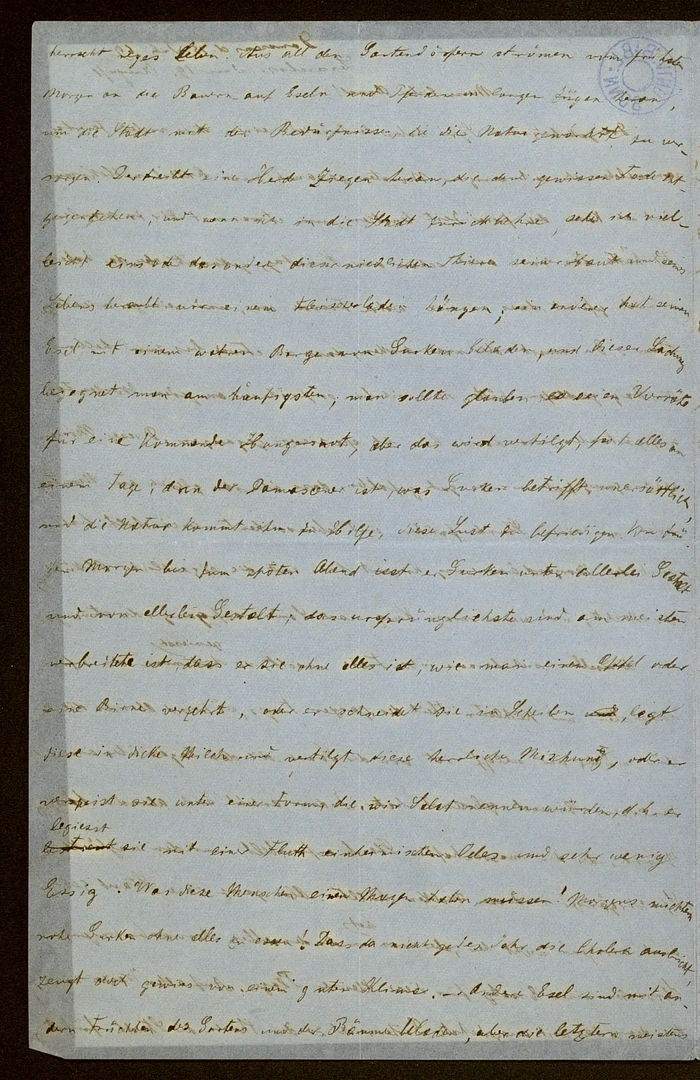 herrscht reges Leben. Aus all den Gartendörfern strömen vom frühsten
Morgen an die Bauern auf Eseln und Pferden in langen Zügen heran,
um die Stadt mit den Bedürfnissen, die die Natur gewährt, zu ver-
sorgen. Da treibt einer eine Herde Ziegen heran, die dem gewissen Tode ent-
gegengehen, und wenn ich in die Stadt zurückkehre, sehe ich viel-
leicht eins od. das andre dieser niedlichen Thiere seiner Haut und seines
Lebens beraubt vor einem Fleischerladen hängen; ein anderer hat seinen
Esel mit einem wahren Berge von Gurken beladen, und dieser Ladung
begegnet man am häufigsten; man sollte glauben es seien Vorräte
für eine kommende Hungersnot, aber das wird vertilgt, fast alles an
einem Tage; denn der Damascener ist, was Gurken betrifft, unersättlich
und die Natur kommt ihm zu Hilfe, diese Lust zu befriedigen. Vom frü-
hen Morgen bis zum späten Abend isst er Gurken unter allerlei
und von allerlei Gestalt; das ursprünglichste und am meisten
verbreitete ist, dass er sie ohne alles isst, wie man einen Apfel oder
eine Birne verzehrt, oder er schneidet sie in Scheiben, legt
diese in dicke Milch und vertilgt diese herrliche Mischung, oder er
verspeist sie unter einer Form, die wir Salat nennen würden, d.h. er
begiesst
sie mit einer Fluth einheimischen Oeles und sehr wenig
Essig. Was diese Menschen einen Magen haben müssen! Morgens nüchtern
rohe Gurken ohne alles! Dass da nicht jedes Jahr die Cholera ausbricht,
zeugt gewiss von einem guten Klima. – Andere Esel sind mit an-
dern Früchten des Gartens und der Bäume beladen, aber die letztern meistens